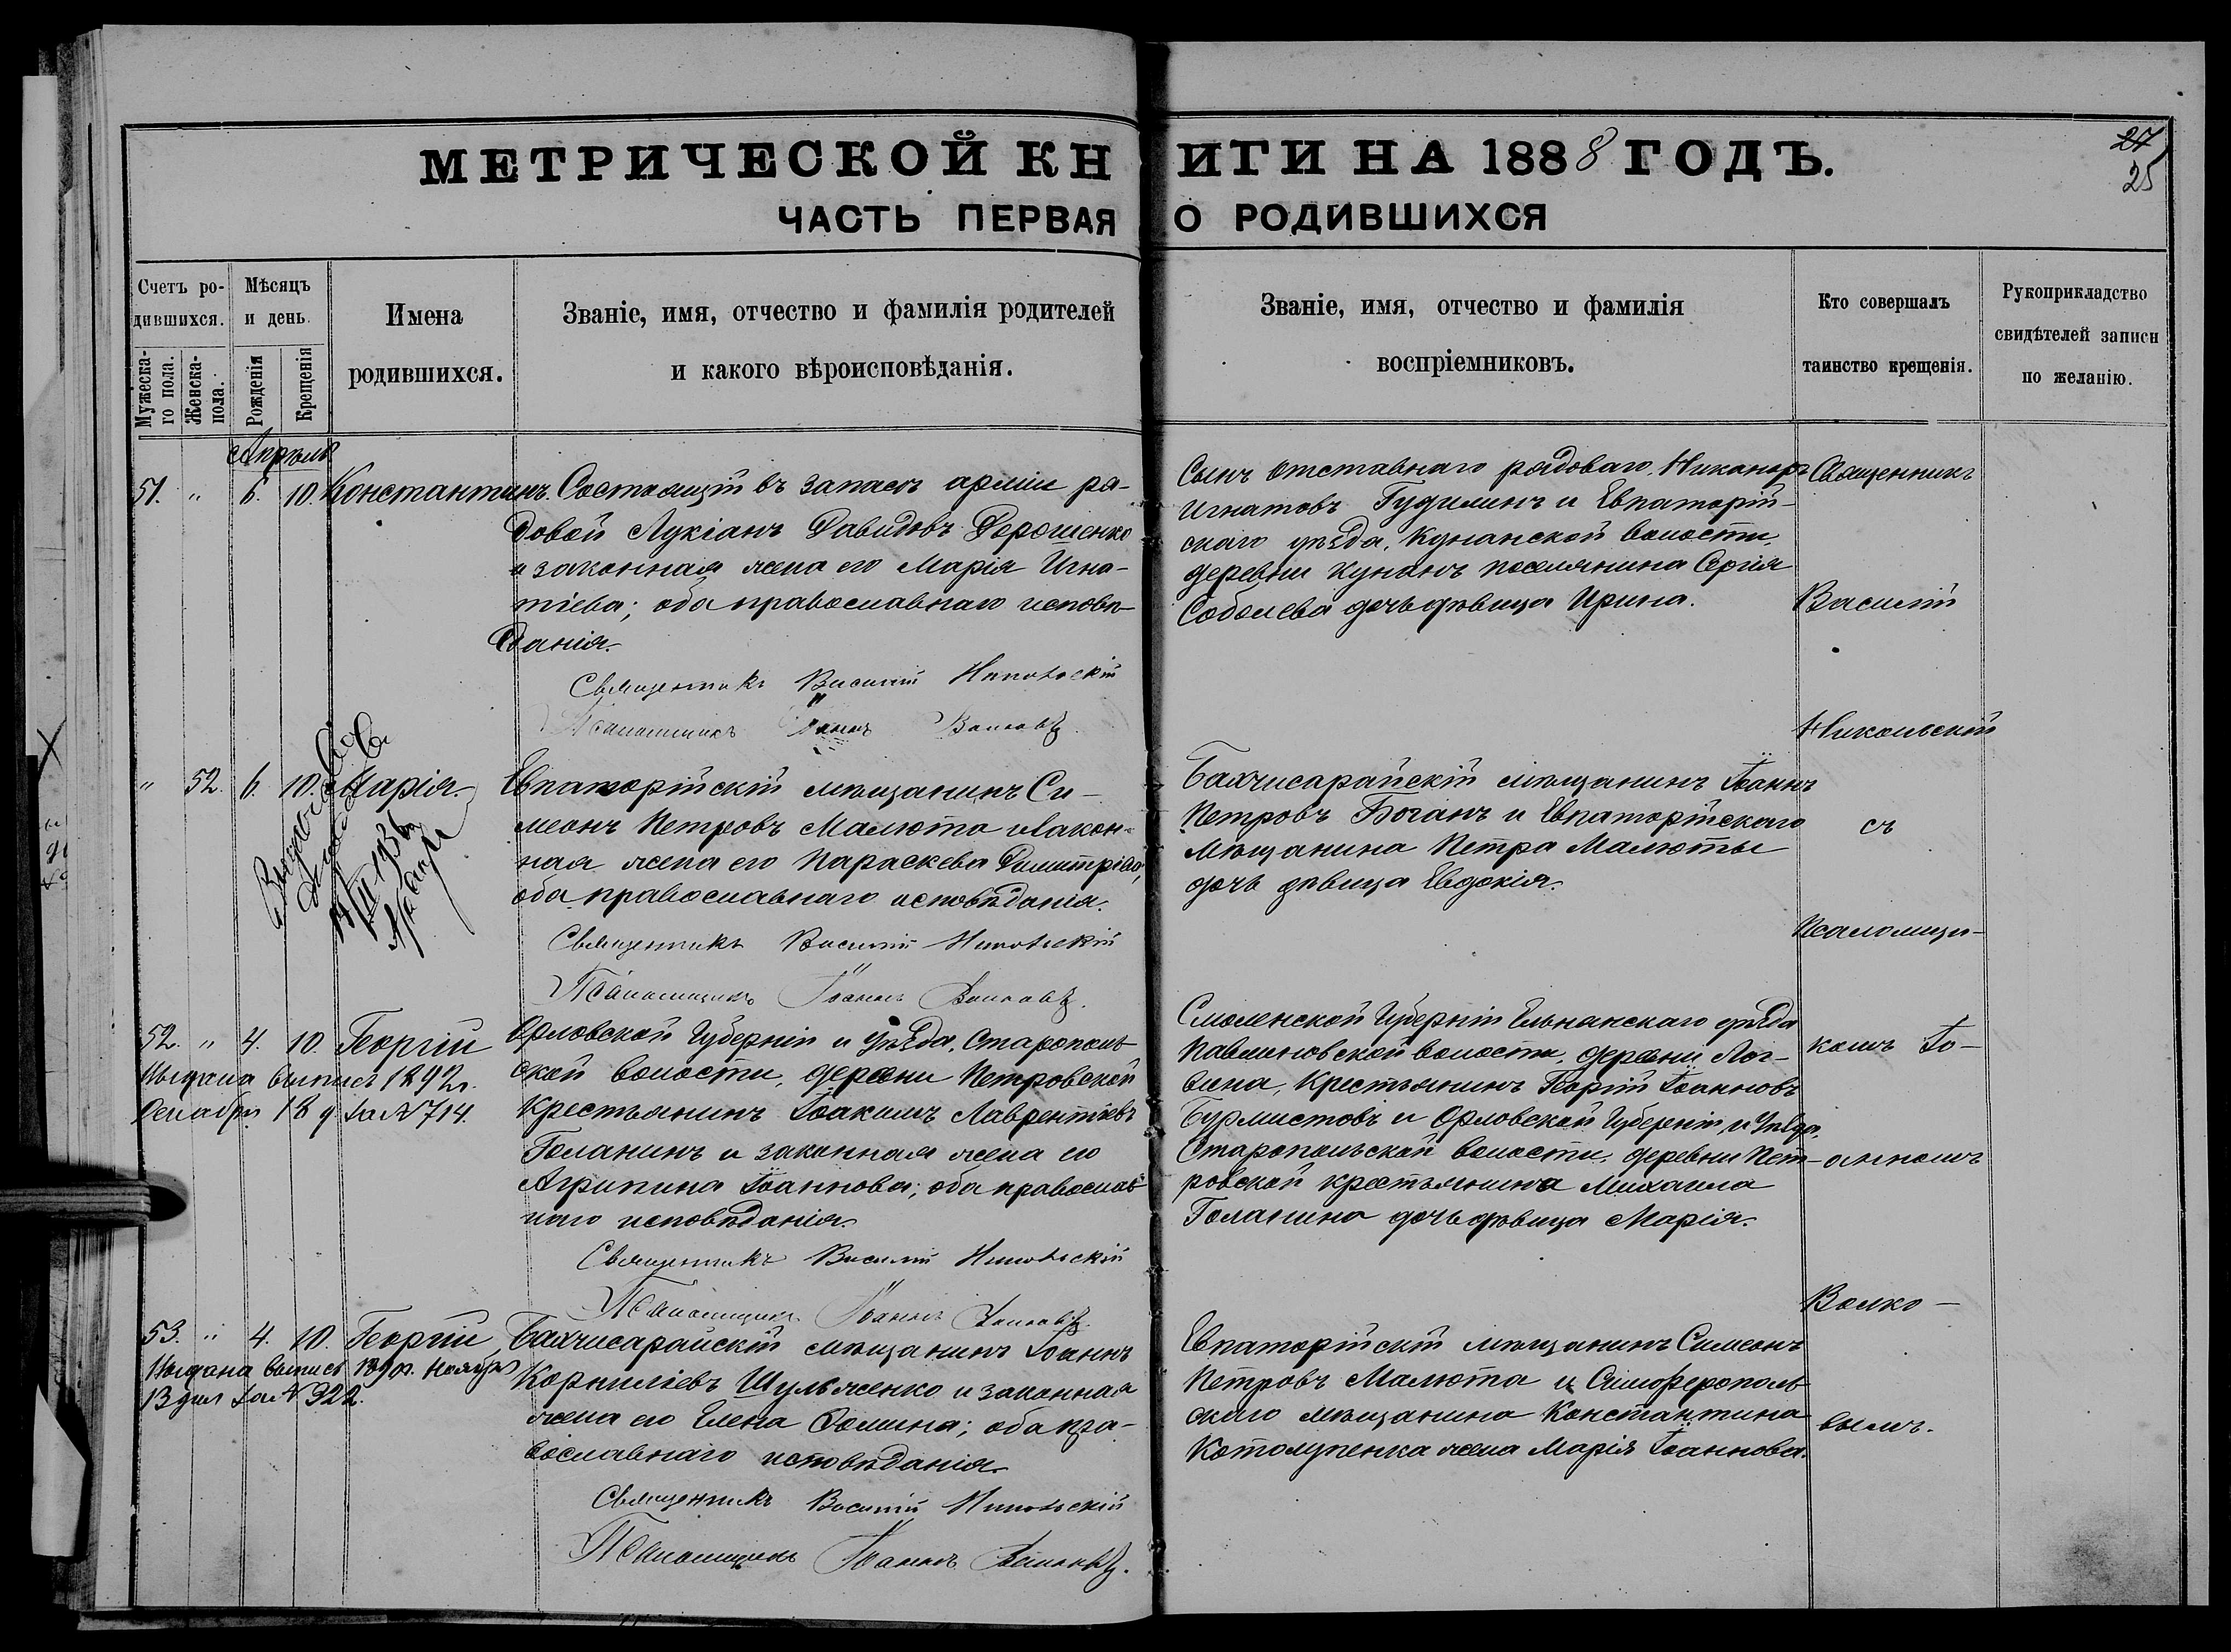 МЕТРИЧЕСКОЙ КНИГИ НА 1888 ГОДЪ.
27
25
ЧАСТЬ ПЕРВАЯ О РОДИВШИХСЯ
Счетъ родившихся.
Мужеска-го пола.
Женска- пола.
Мѣсяцъ и день.
Рожденія
Крещенія
Имена родившихся.
Званіе, имя, отчество и фамилія родителей
и какого вѣроисповѣданія.
Званіе, имя, отчество и фамилія
воспріемниковъ.
Кто совершалъ
таинство крещенія.
Рукоприкладство
свидѣтелей записи
по желанію.
Апрѣль
51. " 6. 10. Константинъ. Состоящій въ запасѣ арміи ря-
довой Лукіанъ Давидовъ Дорошенко
и законная жена его Марія Игна-
тіева; оба православнаго исповѣ-
данія.
Священникъ Василій Никольскій
Псаломщикъ Іоаннъ Волковъ.
Сынъ отставнаго рядоваго, Никаноръ
Игнатовъ Гудилинъ и Евпаторій-
скаго уѣзда, Кунанской волости,
деревни Кунанъ поселянина Сергія
Соболева дочь дѣвица Ирина.
" 52. 6. 10. Марія.
1936
Евпаторійскій мѣщанинъ Си-
меонъ Петровъ Малюта и закон-
ная жена его Параскева Димитріева,
оба православнаго исповѣданія.
Священникъ Василій Никольскій
Псаломщикъ Іоаннъ Волковъ.
Бахчисарайскій мѣщанинъ Іоаннъ
Петровъ Боганъ и Евпаторійскаго
мѣщанина Петра Малюты
дочь дѣвица Евдокія.
52. " 4. 10. Георгій
Выдана выпись 1892 г.
Декабря 18 д за № 714.
Орловской Губерніи и Уѣзда, Старополь-
ской волости, деревни Петровской
Крестьянинъ Іоакимъ Лаврентіевъ
Голанинъ и законная жена его
Агрипина Іоаннова; оба православ-
наго исповѣданія.
Священникъ Василій Никольскій
Псаломщикъ Іоаннъ Волковъ.
Смоленской Губерніи Ельнинскаго уѣзда
Павлиновской волости, деревни Лог-
вина, Крестьянинъ Георгій Іоанновъ
Бурмистовъ и Орловской Губерніи и Уѣзда,
Старопольской волости, деревни Пет-
ровской крестьянина Михаила
Голанина дочь дѣвица Марія.
53. " 4. 10. Георгій
Выдана выпись Ноября
13 дня за № 322.
Бахчисарайскій мѣщанинъ Іоаннъ
Корниліевъ Шульженко и законная
жена его Елена Фомина; оба пра-
вославнаго исповѣданія.
Священникъ Василій Никольскій
Псаломщикъ Іоаннъ Волковъ.
Евпаторійскій мѣщанинъ Симеонъ
Петровъ Малюта и Симферополь-
скаго мѣщанина Константина
Котолупенка жена Марія Іоаннова.
Священникъ
Василій
Никольскій
съ
Псаломщи-
комъ Іо-
анномъ
Волко-
вымъ.